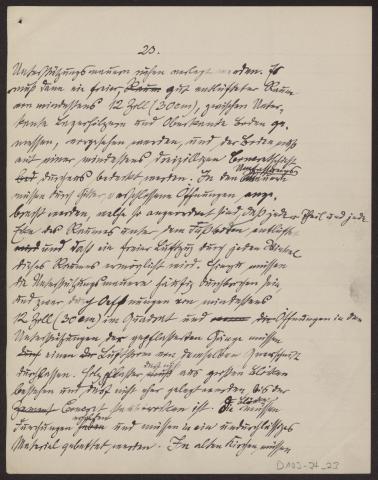 20.
Unterstützungsmauern ruhen verlegt werden. Es
muß dann ein freier, Raum gut entlüfteter Raum
von mindestens 12 Zoll (30 cm), zwischen Unter-
kante Lagerhölzern und Oberkante Boden ge-
messen, vorgesehen werden, und der Boden muß
mit einer mindestens dreizölligen Concretschicht
durchaus bedeckt werden. In den Unterstützungs
mauern
müssen durch Gitter verschlossene Öffnungen ange-
bracht werden, welche so angeordnet sind, daß jeder Theil und jede
Ecke des Raumes unter dem Fußboden entlüftet
wird und daß ein freier Luftzug durch jeden Winkel
dieses Raumes ermöglicht wird. müssen
die Unterstützungsmauern häufig durchbrochen sein
und zwar durch Öffnungen von mindestens
12 Zoll (30 cm) im Quadrat und die Öffnungen in den
Unterstützungen der gepflasterten Gänge müssen
einen Luftstrom von demselben Querschnitt
durchlassen. Holzpflaster muß aus großen Blöcken
bestehen und darf nicht eher gelegt werden, bis der
Cement Concret trocken ist. Die Blöcke müssen
und müssen in ein undurchlässiges
Material gebettet werden. In alten Kirchen müssen
D103-24_23